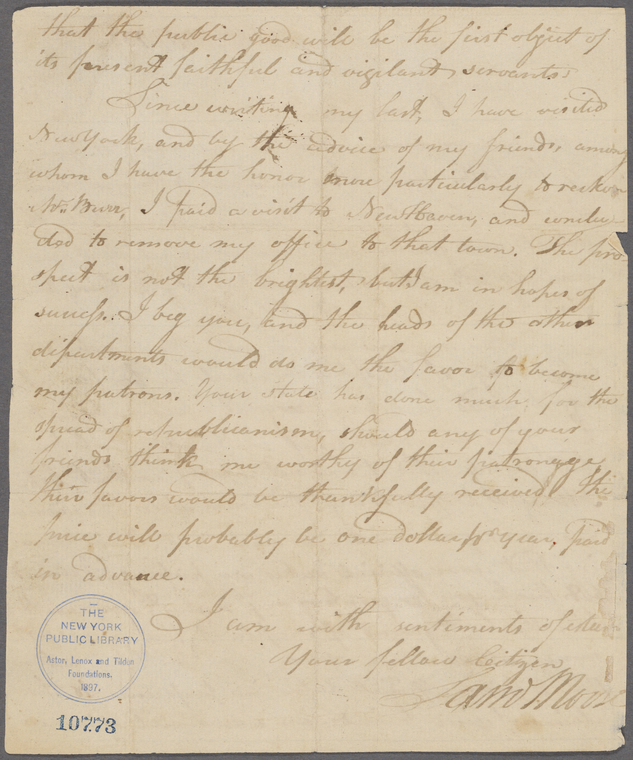 that the public good will be the first object of
its present faithful and vigilant servants.
Since writing my last, I have visited
New York, and by the advice of my friends, among
whom I have the honor more particularly to reckon
Mr. Burr, I paid a visit to New Haven, and conclu-
ded to remove my office to that town. The pro-
spect is not the brightest, but I am in hopes of
success. I beg you, and the heads of the other
departments would do me the favor to become
my patrons. Your state has done much for the
spread of republicanism, should any of your
friends think me worthy of their patronage
their favors would be thankfully received. The
price will probably be one dollar pr year, paid
in advance.
I am with sentiments of
Your fellow Citizen
THE
NEW YORK
PUBLIC LIBRARY
Astor, Lenox and Tilden
Foundations.
1897.
10773